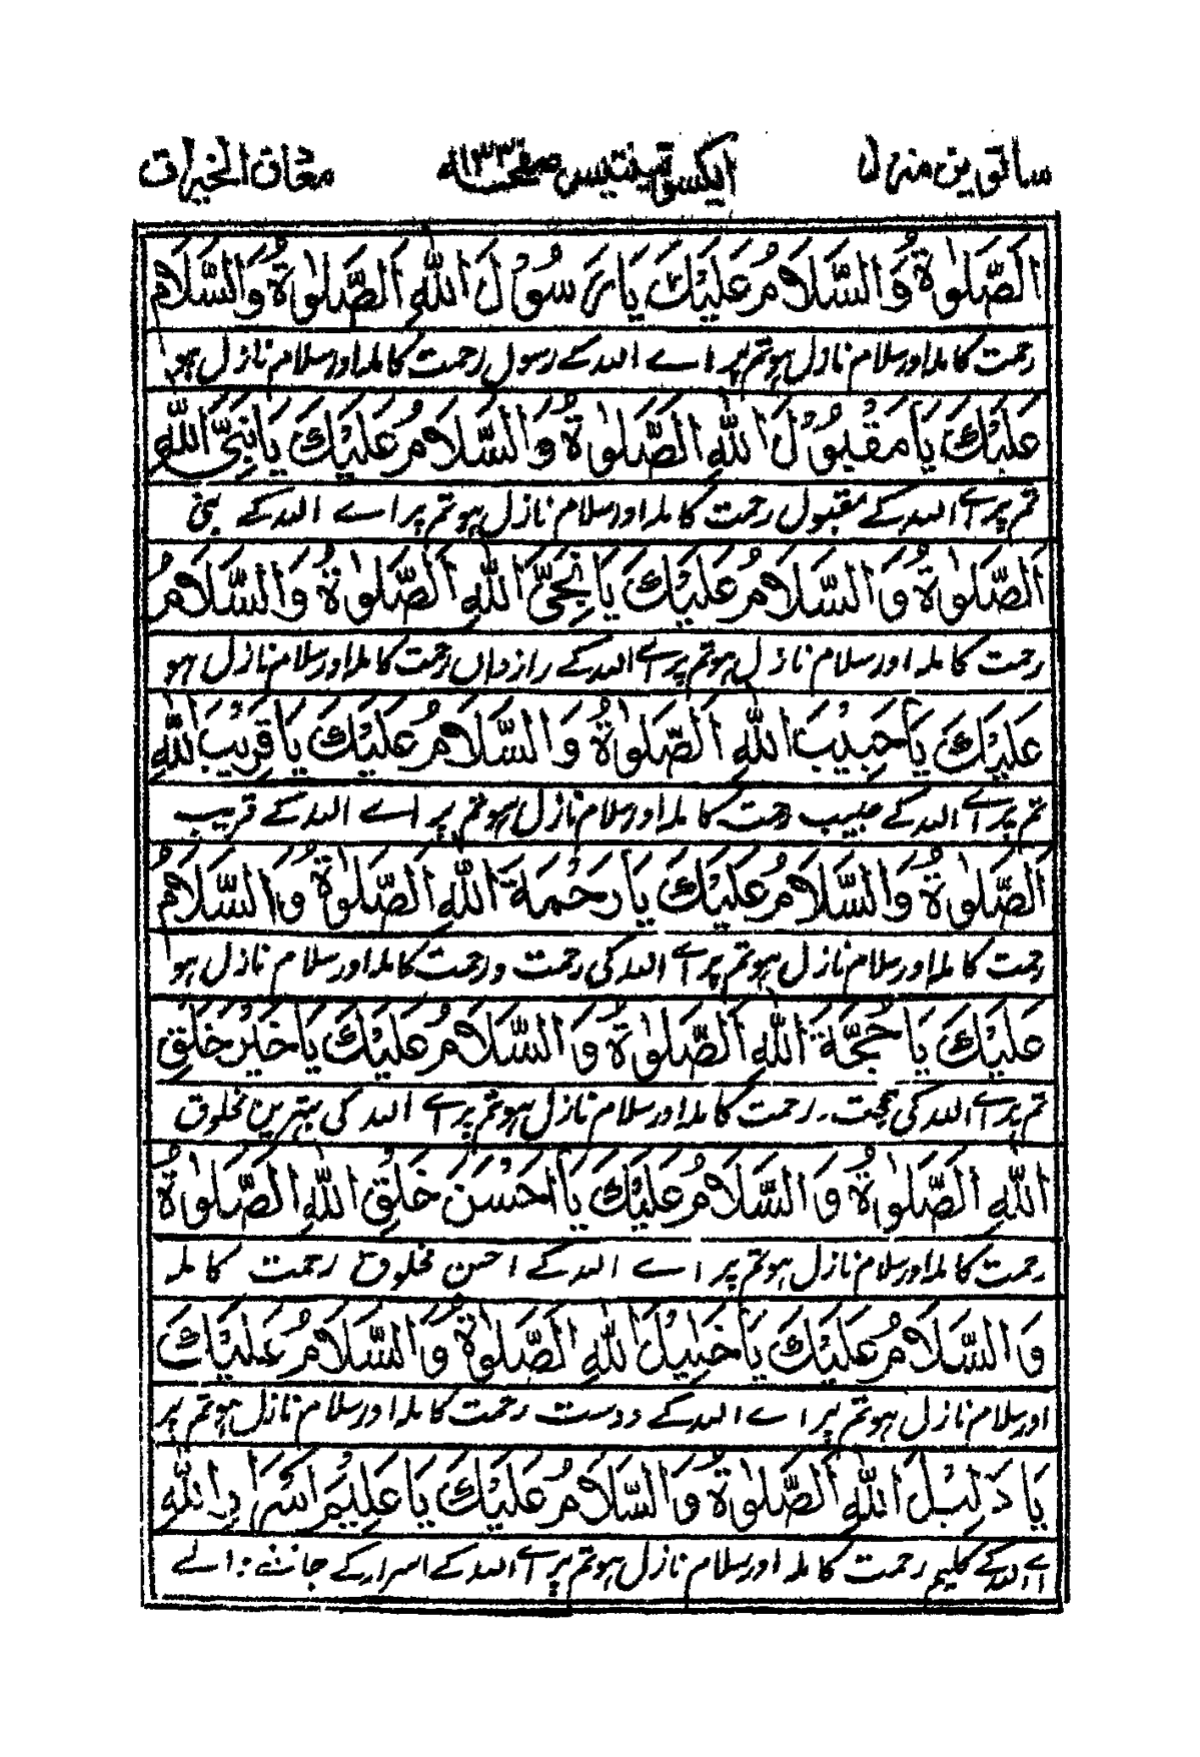 ساتویں منزل ایکسو تینتیس صفحہ ۱۳۳ معان الخیرات
اَلصَّلٰوةُ وَالسَّلَامُ عَلَیْكَ یَا رَسُوْلَ اللّٰهِ اَلصَّلٰوةُ وَالسَّلَامُ
رحمت کاملہ اور سلام نازل ہو تم پر اے اللہ کے رسول رحمت کاملہ اور سلام نازل ہو
عَلَیْكَ یَا مَقْبُوْلَ اللّٰهِ اَلصَّلٰوةُ وَالسَّلَامُ عَلَیْكَ یَا نَبِیَّ اللّٰهِ
تم پر اے اللہ کے مقبول رحمت کاملہ اور سلام نازل ہو تم پر اے اللہ کے نبی
اَلصَّلٰوةُ وَالسَّلَامُ عَلَیْكَ یَا نَجِیَّ اللّٰهِ اَلصَّلٰوةُ وَالسَّلَامُ
رحمت کاملہ اور سلام نازل ہو تم پر اے اللہ کے رازداں رحمت کاملہ اور سلام نازل ہو
عَلَیْكَ یَا حَبِیْبَ اللّٰهِ اَلصَّلٰوةُ وَالسَّلَامُ عَلَیْكَ یَا قَرِیْبَ اللّٰهِ
تم پر اے اللہ کے حبیب رحمت کاملہ اور سلام نازل ہو تم پر اے اللہ کے قریب
اَلصَّلٰوةُ وَالسَّلَامُ عَلَیْكَ یَا رَحْمَةَ اللّٰهِ اَلصَّلٰوةُ وَالسَّلَامُ
رحمت کاملہ اور سلام نازل ہو تم پر اے اللہ کی رحمت و رحمت کاملہ اور سلام نازل ہو
عَلَیْكَ یَا حُجَّةَ اللّٰهِ اَلصَّلٰوةُ وَالسَّلَامُ عَلَیْكَ یَا خَیْرَ خَلْقِ
تم پر اے اللہ کی حجت۔ رحمت کاملہ اور سلام نازل ہو تم پر اے اللہ کی بہترین مخلوق
اللّٰهِ اَلصَّلٰوةُ وَالسَّلَامُ عَلَیْكَ یَا اَحْسَنَ خَلْقِ اللّٰهِ اَلصَّلٰوةُ
رحمت کاملہ اور سلام نازل ہو تم پر اے اللہ کے احسن مخلوق رحمت کاملہ
وَالسَّلَامُ عَلَیْكَ یَا خَلِیْلَ اللّٰهِ اَلصَّلٰوةُ وَالسَّلَامُ عَلَیْكَ
اور سلام نازل ہو تم پر اے اللہ کے دوست رحمت کاملہ اور سلام نازل ہو تم پر
یَا دَلِیْلَ اللّٰهِ اَلصَّلٰوةُ وَالسَّلَامُ عَلَیْكَ یَا عَلِیْمَ اَسْرَارِ اللّٰهِ
اے اللہ کے کلیم رحمت کاملہ اور سلام نازل ہو تم پر اے اللہ کے اسرار کے جاننے والے